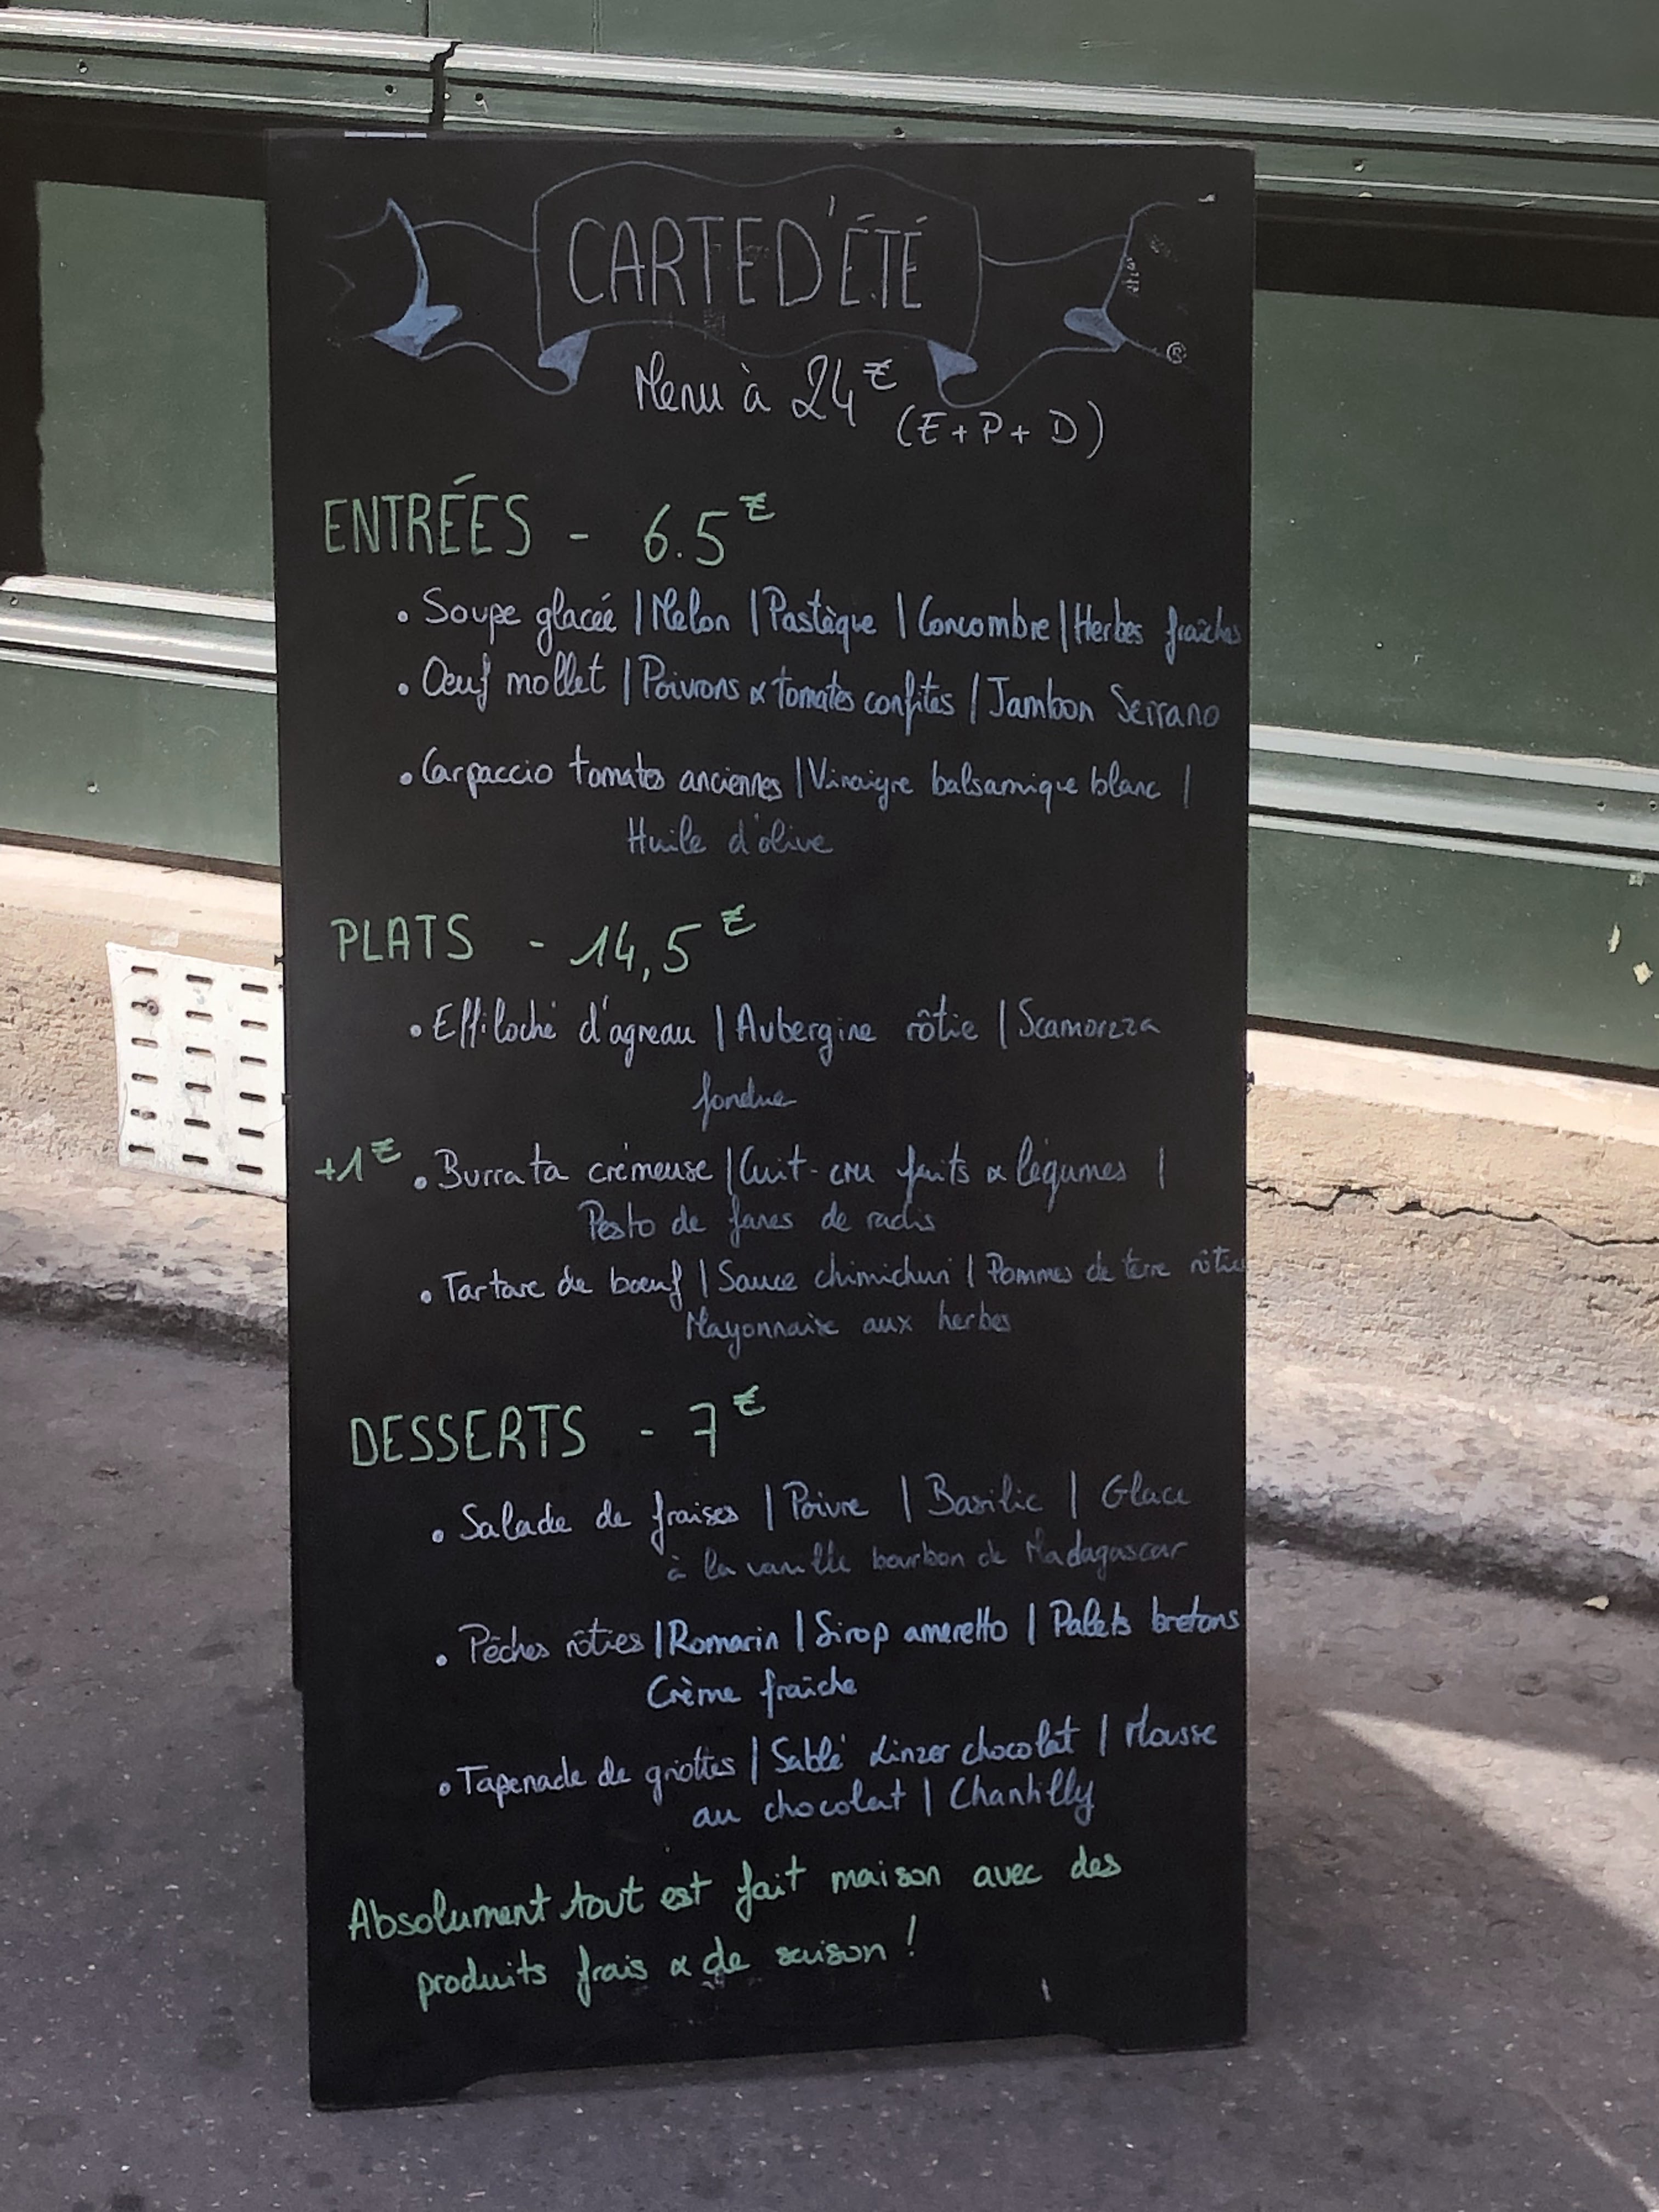 CARTE D'ÉTÉ
Menu à 24€ (E+P+D)
ENTRÉES - 6.5€
• Soupe glacée | Melon | Pastèque | Concombre | Herbes fraîches
• Oeuf mollet | Poivrons & tomates confites | Jambon Serrano
• Carpaccio tomates anciennes | Vinaigre balsamique blanc |
Huile d'olive
PLATS - 14,5€
• Effiloché d'agneau | Aubergine rôtie | Scamorzza
fondue
+1€ • Burrata crémeuse | Cuit-cru fruits & légumes |
Pesto de fanes de radis
• Tartare de boeuf | Sauce chimichuri | Pommes de terre rôties
Mayonnaise aux herbes
DESSERTS - 7€
• Salade de fraises | Poivre | Basilic | Glace
à la vanille bourbon de Madagascar
• Pêches rôties | Romarin | Sirop amaretto | Palets bretons
Crème fraîche
• Tapenade de griottes | Sablé Linzer chocolat | Mousse
au chocolat | Chantilly
Absolument tout est fait maison avec des
produits frais & de saison !